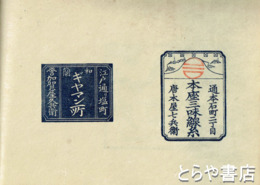 通本石町二丁目
本座三味線糸
唐木屋七兵衛
江戸通り塩町
和
蘭
ギヤマン所
加賀屋久兵衛
とらや書店